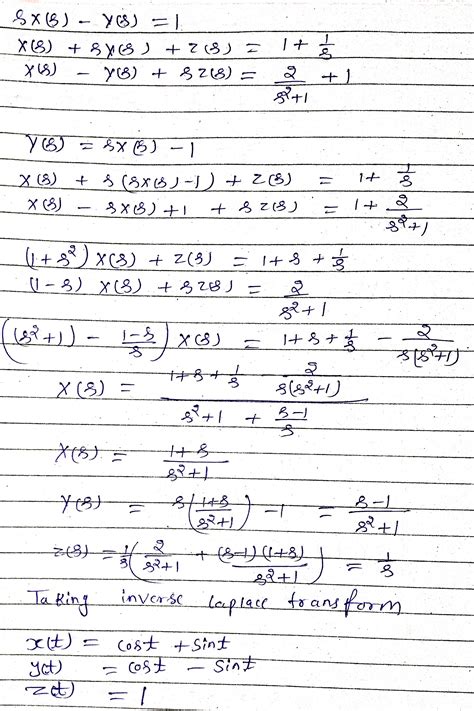 sX(s) − Y(s) = 1
X(s) + sY(s) + Z(s) = 1 + 1/s
X(s) − Y(s) + sZ(s) = 2/(s²+1) + 1
Y(s) = sX(s) − 1
X(s) + s(sX(s) − 1) + Z(s) = 1 + 1/s
X(s) − sX(s) + 1 + sZ(s) = 1 + 2/(s²+1)
(1+s²) X(s) + Z(s) = 1 + s + 1/s
(1−s) X(s) + sZ(s) = 2/(s²+1)
((s²+1) − (1−s)/s) X(s) = 1 + s + 1/s − 2/(s(s²+1))
X(s) = (1 + s + 1/s − 2/(s(s²+1)))/(s²+1 + (s−1)/s)
X(s) = (1+s)/(s²+1)
Y(s) = s((1+s)/(s²+1)) − 1 = (s−1)/(s²+1)
Z(s) = 1/s(2/(s²+1) + (s−1)(1+s)/(s²+1)) = 1/s
Taking inverse laplace transform
x(t) = cost + sint
y(t) = cost − sint
z(t) = 1